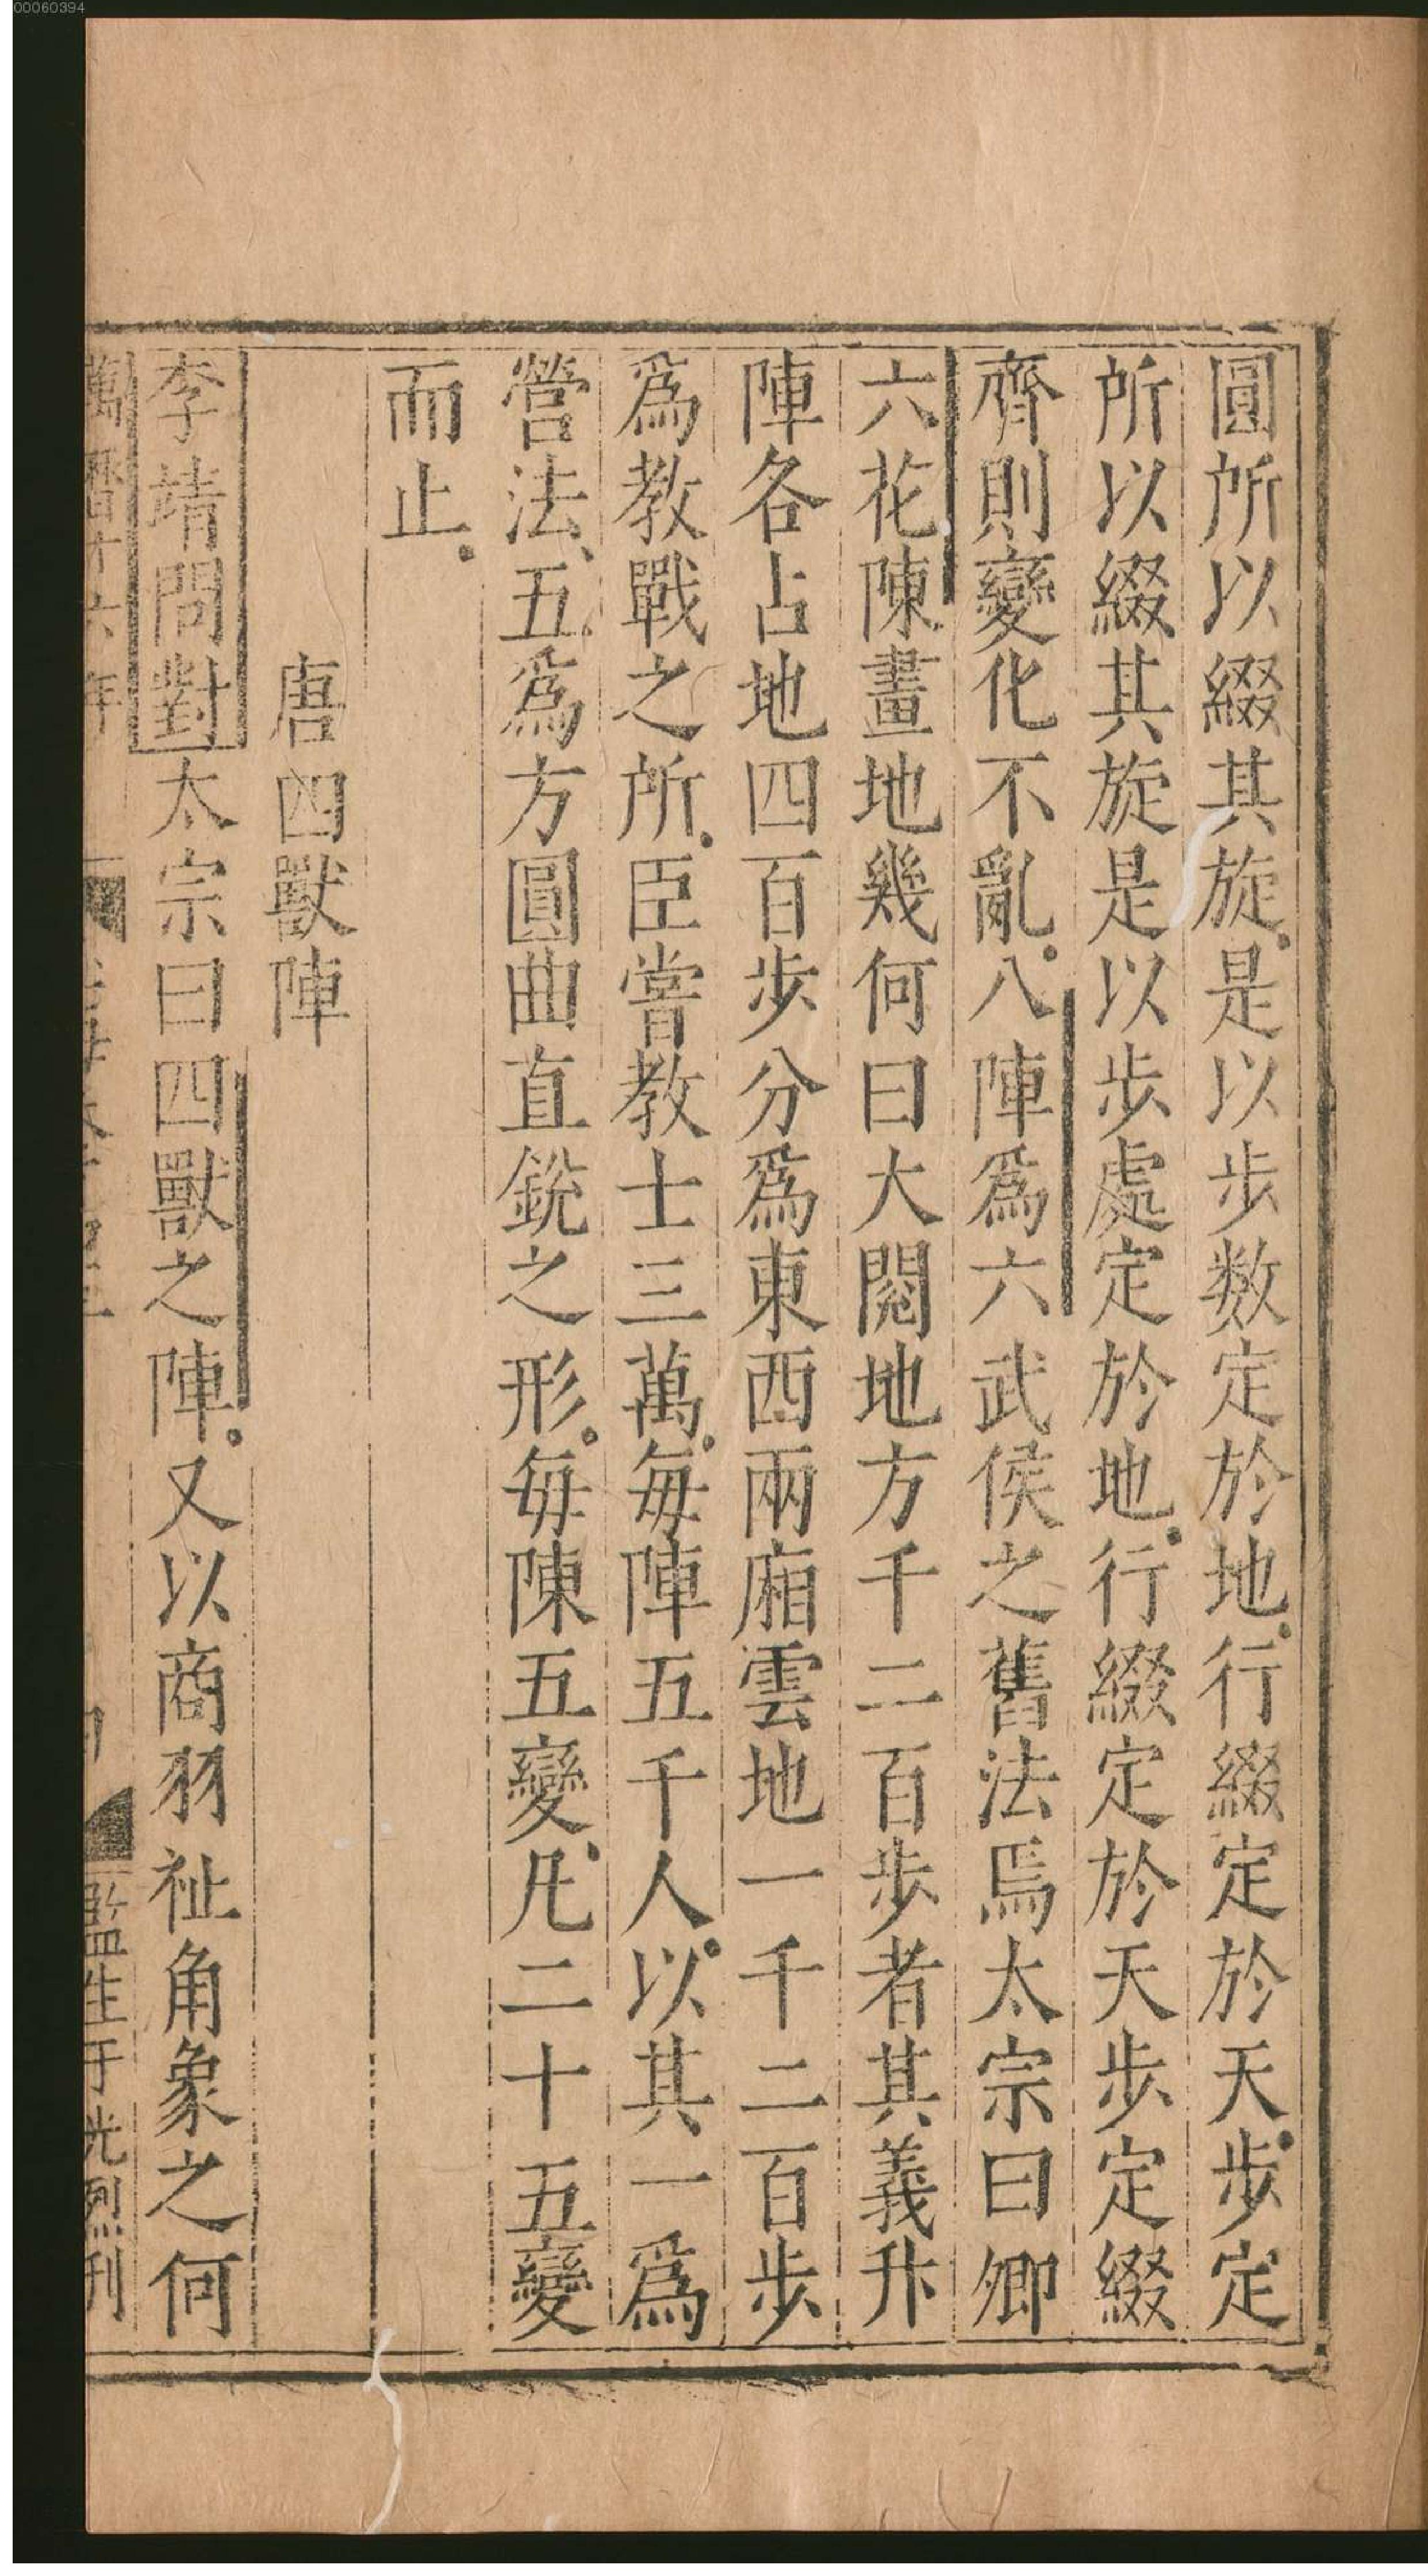 00060394
圓所以綴其旋是以步数定於地行綴定於天步定
所以綴其旋是以步處定於地行綴定於天步定綴
齊則變化不亂八陣爲六武侯之舊法焉太宗曰卿
六花陳畫地幾何曰大閱地方千二百步者其義升
陣各占地四百步分爲東西兩廂雲地一千二百步
爲教戰之所臣嘗教士三萬每陣五千人以其一爲
營法五爲方圓曲直銳之形每陳五變凡二十五變
而止
唐四獸陣
李靖問對太宗曰四獸之陣又以商羽祉角象之何
萬曆十六年
監生于光烈刊